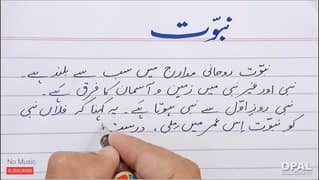 نبوّت
نبوّت روحانی مدارج میں سب سے بلند ہے۔
نبی اور غیر نبی میں زمین و آسمان کا فرق ہے۔
نبی روزِ اوّل سے نبی ہوتا ہے۔ یہ کہنا کہ فلاں نبی
کو نبوّت اِس عمر میں ملی، درست
No Music
SUBSCRIBE
OPAL